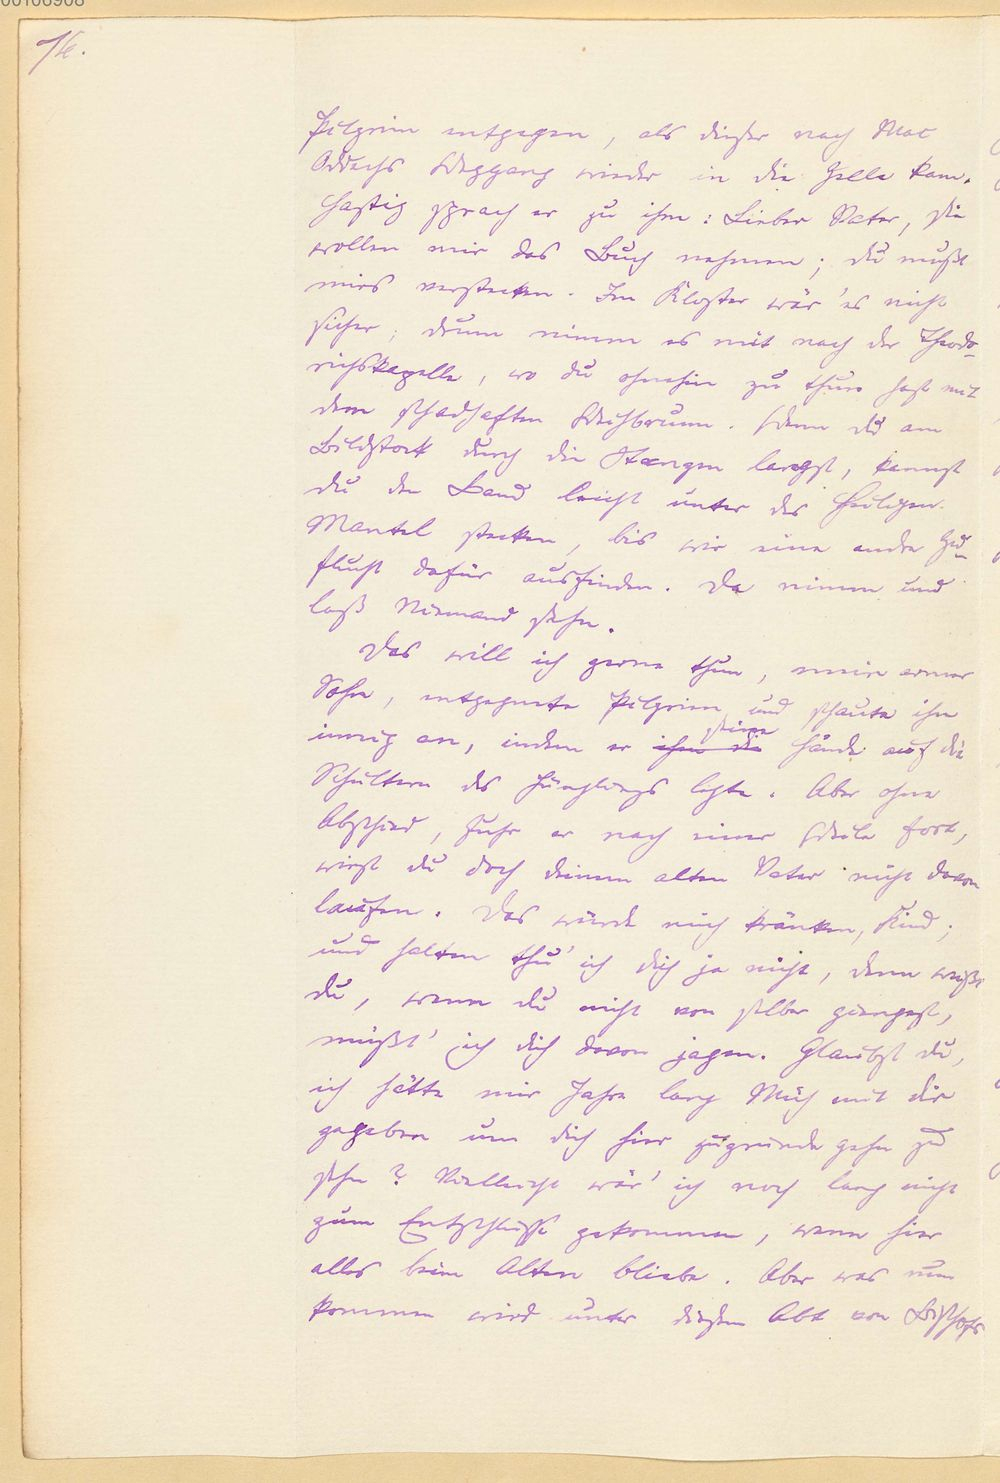 00106908
76.
Pilgrim entgegen, als dieser nach Mac
Oddachs Weggang wieder in die Zelle kam.
Hastig sprach er zu ihm: Lieber Vater, sie
wollen mir das Buch nehmen; du mußt
mirs verstecken. Im Kloster wär' es nicht
sicher; drum nimm es mit nach der Theodo-
richskapelle, wo du ohnehin zu thun hast mit
dem schadhaften Weihbrunn. Wenn du am
Bildstock durch die Stangen langst, kannst
du den Band leicht unter des Heiligen
Mantel stecken, bis wir eine andre Zu-
flucht dafür ausfinden. Da nimm und
laß Niemand sehn.
Das will ich gerne thun, mein armer
Sohn, entgegnete Pilgrim und schaute ihn
innig an, indem er ihm die seine Hände auf die
Schultern des Jünglings legte. Aber ohne
Abschied, fuhr er nach einer Weile fort,
wirst du doch deinem alten Vater nicht davon
laufen. Das würde mich kränken, Kind;
und halten thu' ich dich ja nicht, denn weißt
du, wenn du nicht von selber giengest,
müßt' ich dich davon jagen. Glaubst du,
ich hätte mir Jahre lang Müh mit dir
gegeben um dich hier zugrunde gehn zu
sehn? Vielleicht wär' ich noch lang nicht
zum Entschlusse gekommen, wenn hier
alles beim Alten bliebe. Aber was nun
kommen wird unter diesem Abt von Bischofs